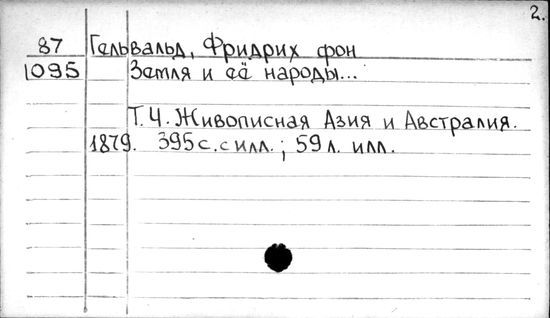 2.
87 Гельвальд, Фридрих фон
1095 Земля и её народы...
Т.Ч. Живописная Азия и Австралия.
1879. 395 с. с илл.; 59 л. илл.